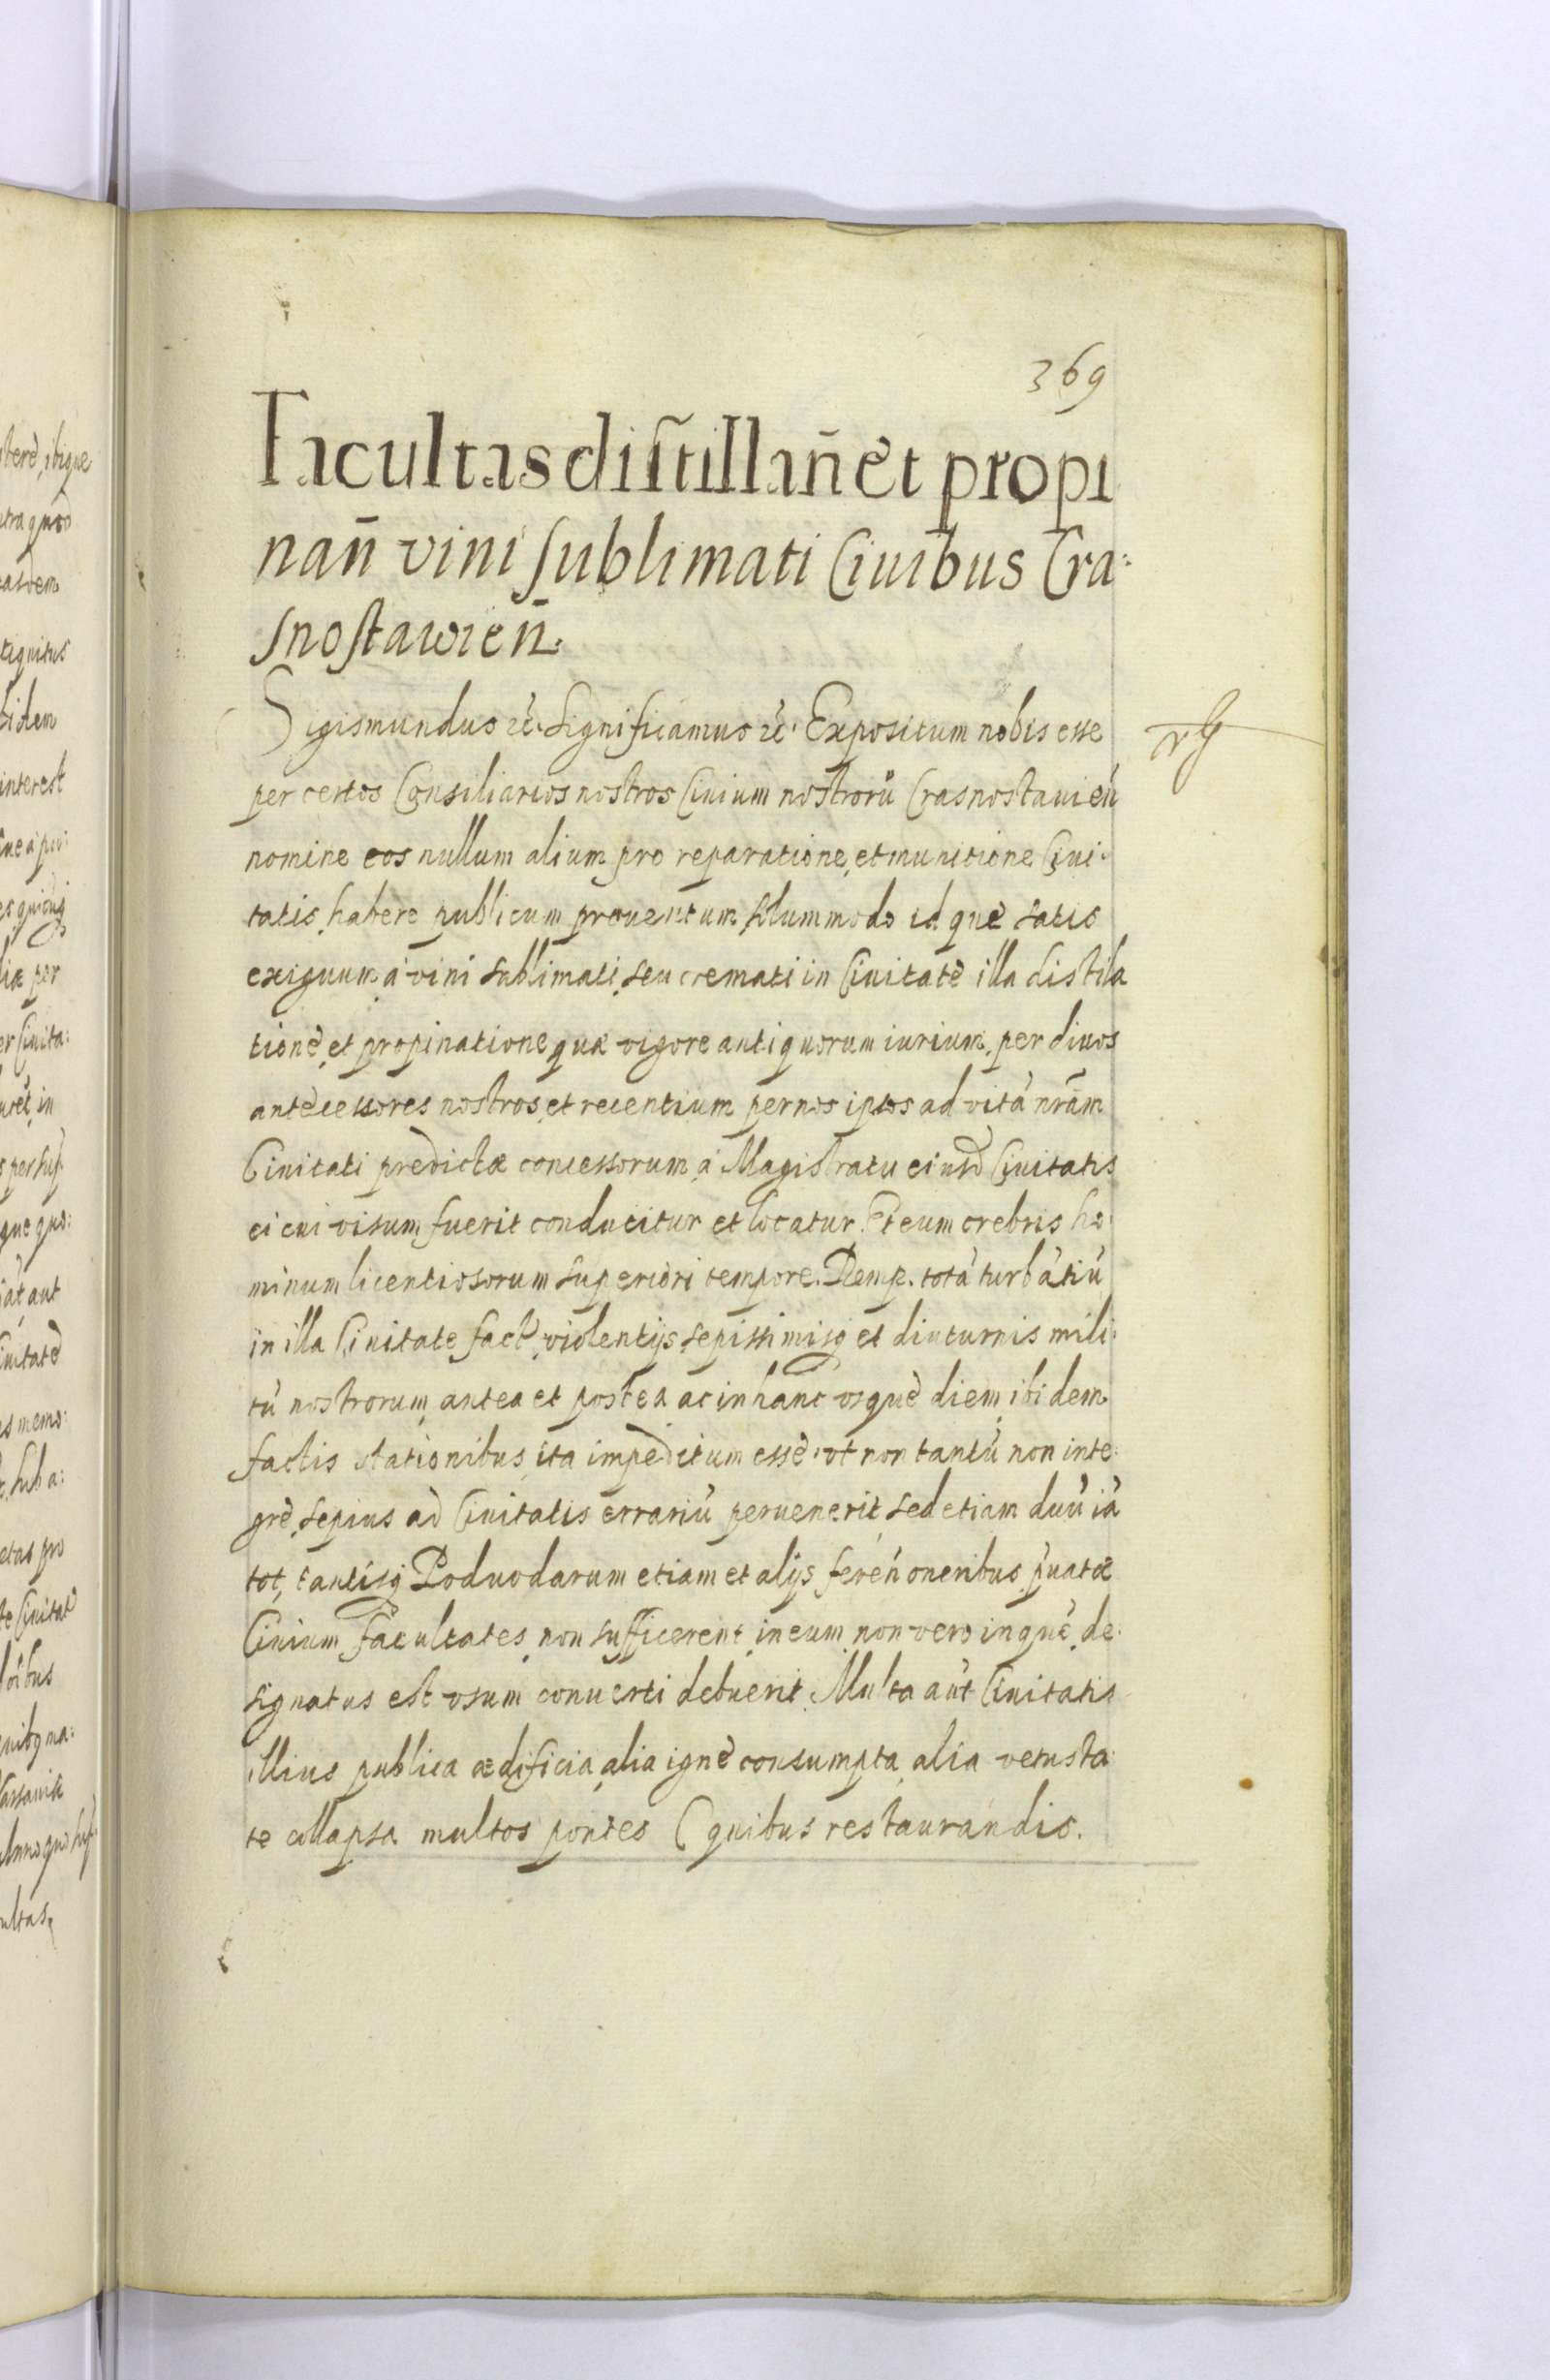 369
Facultas distillan̄ et propi
nan̄ vini sublimati Ciuibus Cra:
snostawien̄.
Sigismundus ꝛc̃. Significamus ꝛc̃. Expositum nobis esse
per certos Consiliarios nostros Ciuium nostrorũ Crasnostauien̄
nomine eos nullum alium pro reparatione, et munitione Ciui:
tatis, habere publicum prouentum, solummodo id què satis
exiguum à vini sublimati, seu cremati in Ciuitatè illa distila
tionè, et propinatione quæ vigore antiquorum iurium, per diuos
antècessores nostros, et recentium per nos ipsos ad vitã nrãm
Ciuitati predictæ concessorum, à Magistratu eiusd̃ Ciuitatis
ei cui visum fuerit conducitur et locatur. Et eum crebris ho:
minum licentiosorum superiori tempore. Remp. totã turbãtiũ
in illa Ciuitate fact̃, violentijs, sepissimisq̃ et diuturnis mili:
tũ nostrorum, antea et postea ac in hanc vsquè diem, ibidem
factis stationibus, ita impeditum essè, vt non tantũ non inte:
grè, sepius ad Ciuitatis errariũ peruenerit, sed etiam duũ iã
tot, tantisq̃ Poduodarum etiam et alijs feren̄ oneribus p̃uatæ
Ciuium facultates, non sufficerent, in eum, non vero in què, de:
signatus est vsum conuerti debuerit. Multa aũt Ciuitatis
illius publica ædificia, alia ignè consumpta, alia vetusta:
te collapsa multos pontes ( quibus restaurandis.